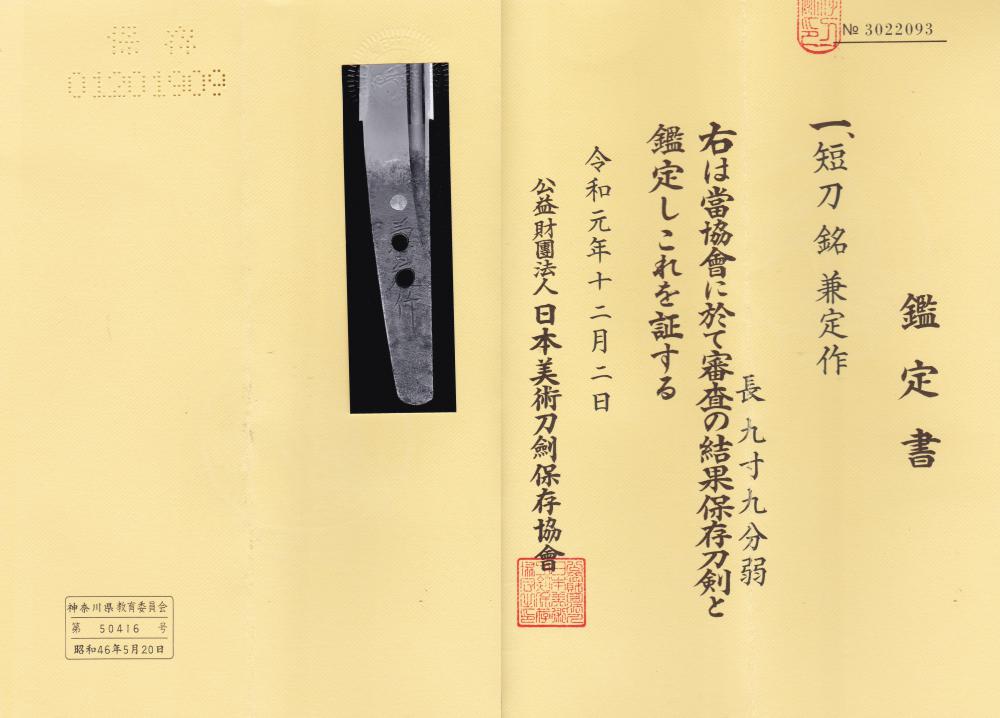 № 3022093
鑑定書
一、短刀 銘 兼定作
長九寸九分弱
右は當協會に於て審査の結果保存刀剣と
鑑定しこれを証する
令和元年十二月二日
公益財團法人 日本美術刀劍保存協會
保存
01201909
神奈川県教育委員会
第 50416 号
昭和46年5月20日